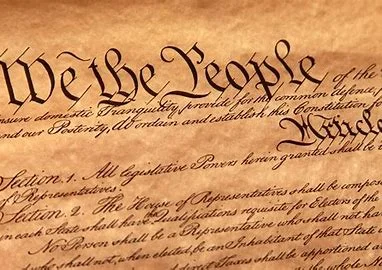 We the People of the
insure domestic Tranquility, provide for the common defence,
and our Posterity, do ordain and establish this Constitution for
Article
Section. 1. All legislative Powers herein granted shall be
of Representatives.
Section. 2. The House of Representatives shall be compos
in each State shall have the Qualifications requisite for Electors of the
No Person shall be a Representative who shall not ha
and who shall not, when elected, be an Inhabitant of that State
and direct Taxes shall be apportioned a